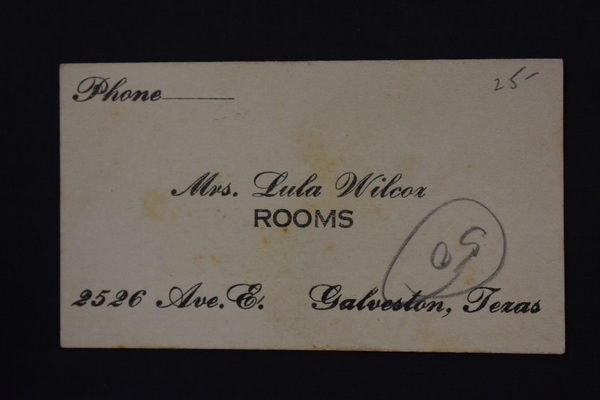 Phone
25-
Mrs. Lula Wilcox
ROOMS
2526 Ave. E. Galveston, Texas